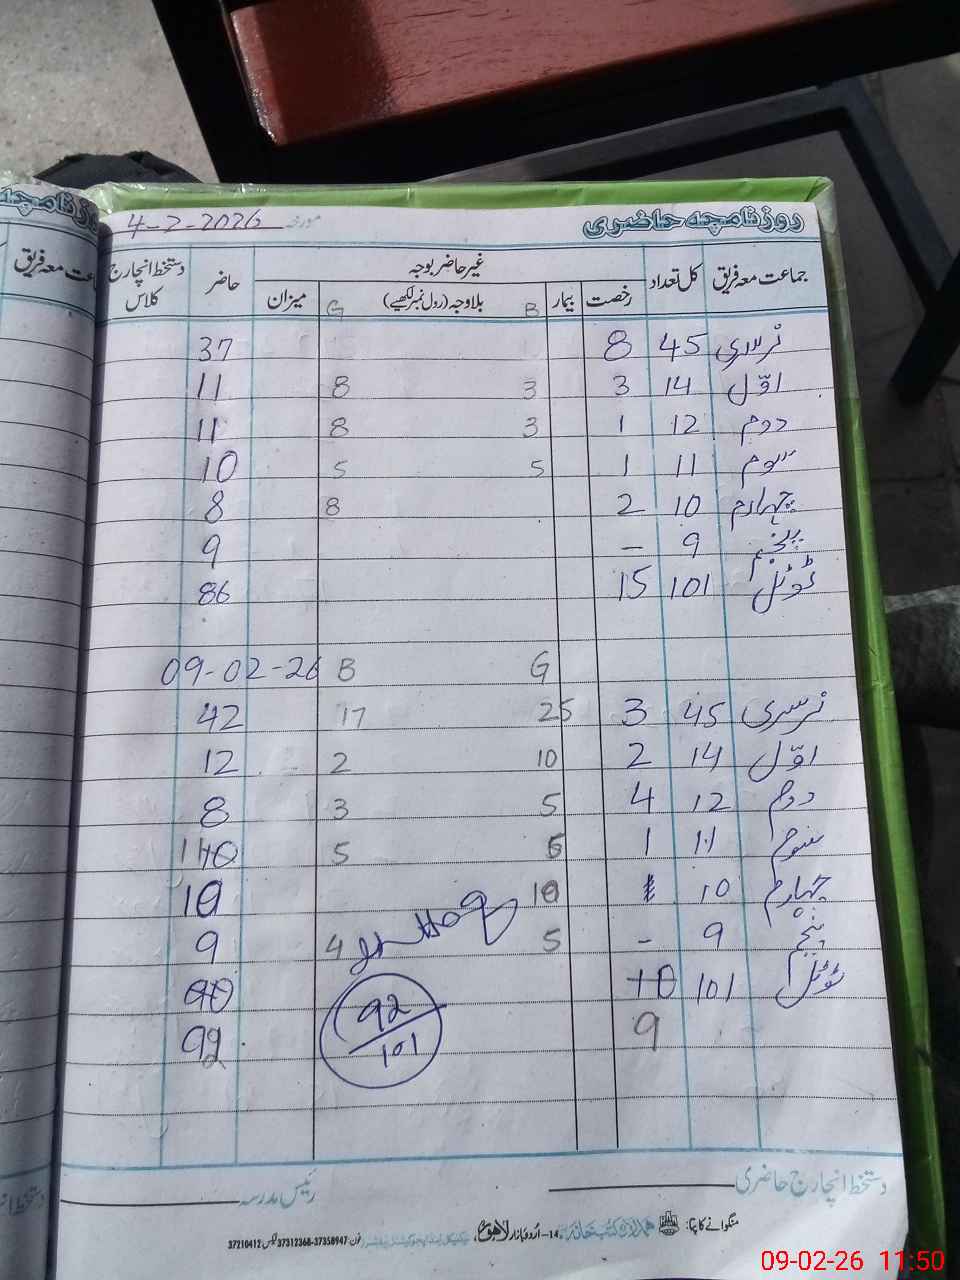 روزنامچہ حاضری مورخہ 4-2-2026
جماعت معہ فریق کل تعداد غیر حاضر بوجہ حاضر دستخط انچارج کلاس
رخصت بیمار B بلاوجہ (رول نمبر لکھیے) G میزان
نرسری 45 8 37
اوّل 14 3 3 8 11
دوم 12 1 3 8 11
سوم 11 1 5 5 10
چہارم 10 2 8 8
پنجم 9 – 9
ٹوٹل 101 15 86
G B 09-02-26
نرسری 45 3 25 17 42
اوّل 14 2 10 2 12
دوم 12 4 5 3 8
سوم 11 1 5
چہارم 10 10 10
پنجم 9 - 5 4 9
ٹوٹل 101
9 92
92/101
دستخط انچارج حاضری رئیس مدرسہ
منگوانے کا پتا: ہمدرد کتب خانہ 14-اُردو بازار لاہور فون: 37358947-37312368 فیکس 37210412
روزنامچہ
جماعت معہ فریق
09-02-26 11:50